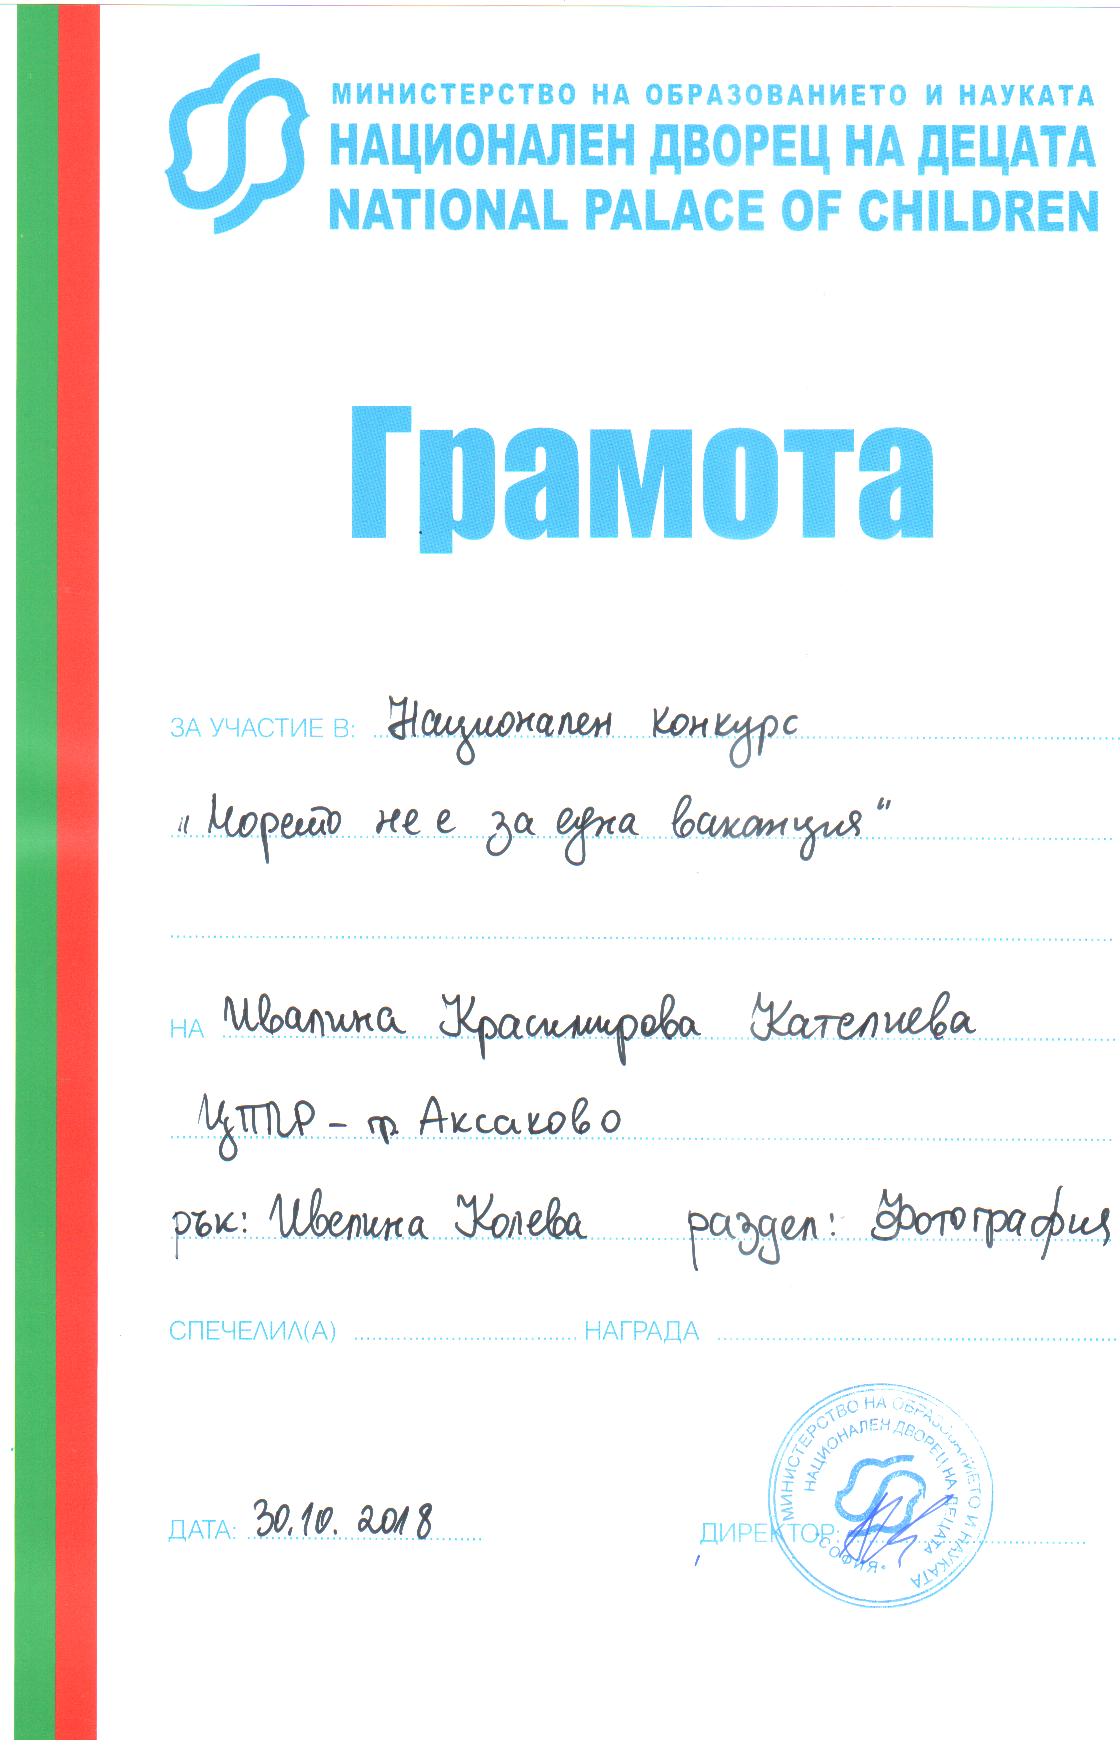 МИНИСТЕРСТВО НА ОБРАЗОВАНИЕТО И НАУКАТА
НАЦИОНАЛЕН ДВОРЕЦ НА ДЕЦАТА
NATIONAL PALACE OF CHILDREN
Грамота
ЗА УЧАСТИЕ В: Национален конкурс
„Морето не е за една ваканция“
НА Ивалина Красимирова Кателиева
ЦПЛР – гр. Аксаково
рък: Ивелина Колева раздел: Фотография
СПЕЧЕЛИЛ(А) НАГРАДА
МИНИСТЕРСТВО НА ОБРАЗОВАНИЕТО И НАУКАТА
НАЦИОНАЛЕН ДВОРЕЦ НА ДЕЦАТА
*СОФИЯ*
ДАТА: 30.10.2018 ДИРЕКТОР: